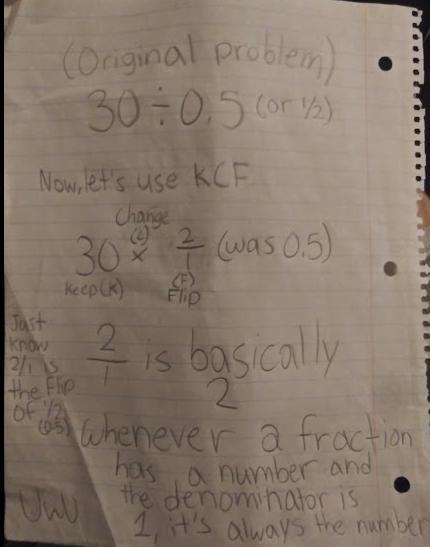 (Original problem)
30 ÷ 0.5 (or 1/2)
Now, let's use KCF
Change
(C)
30 × 2/1 (was 0.5)
Keep (K)
(F)
Flip
Just
know
2/1 is
the Flip
of 1/2
(0.5)
2/1 is basically
2
Whenever a fraction
has a number and
the denominator is
1, it's always the number
UwU